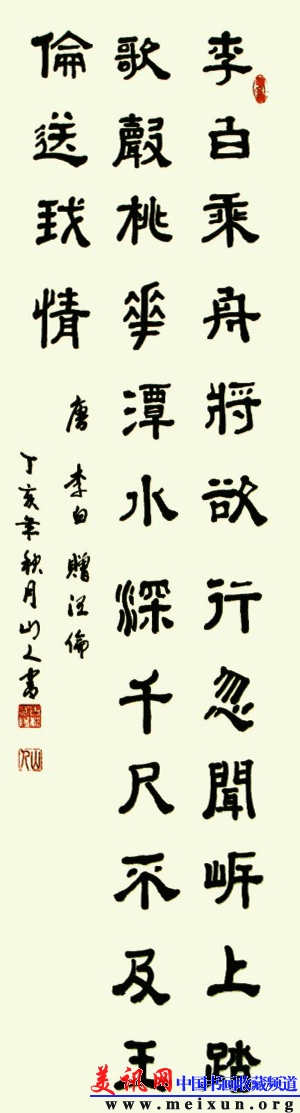 李白乘舟將欲行忽聞岸上踏
歌聲桃華潭水深千尺不及王
倫送我情
唐 李白 贈汪倫
丁亥年秋月山人書
美讯网 中国书画收藏频道
www.meixun.org